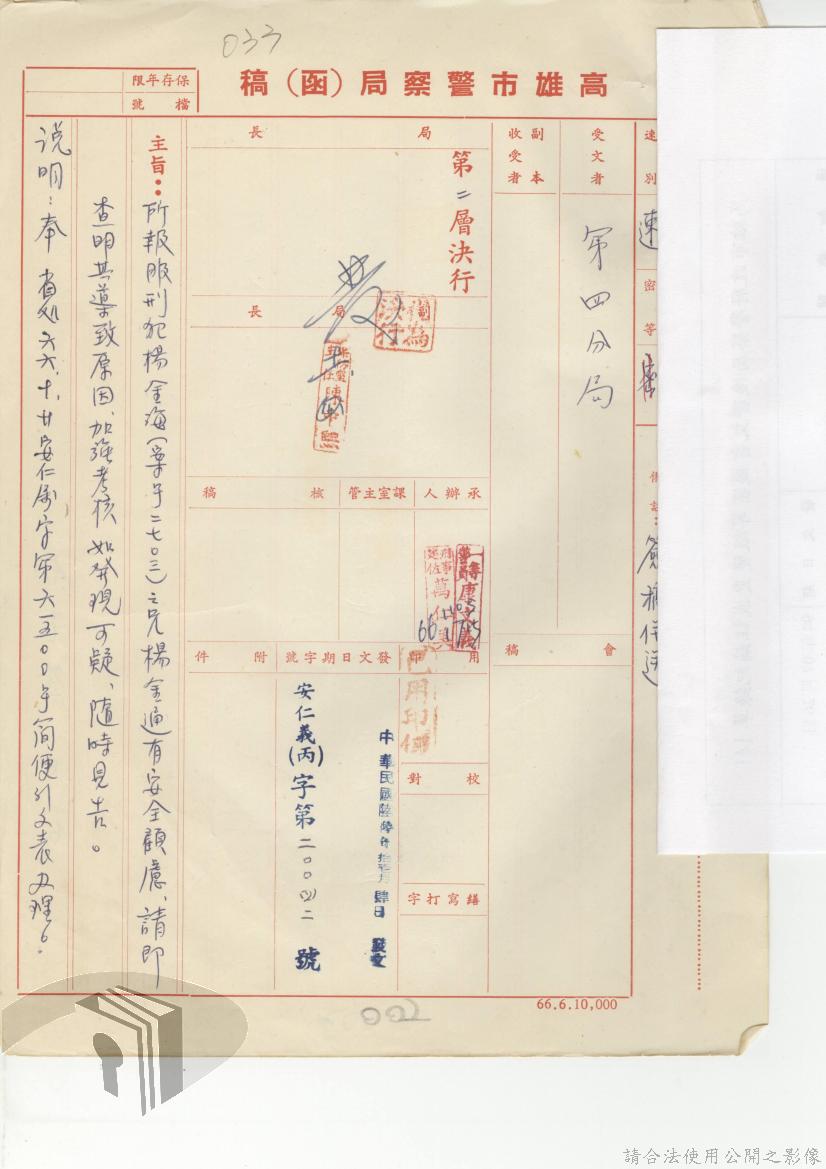 033
高雄市警察局（函）稿
保存年限
檔號
速別
速
密等
備註：
簽稿併送
受文者
第四分局
副本收受者
局長
第二層決行
副局長
承辦人
課室主管
核稿
會稿
用印
已用印
發文日期字號
附件
中華民國陸陸年
肆日發文
安仁義(丙)字第二〇〇
號
校對
繕寫打字
主旨：所報服刑犯楊金海（案号二七〇三）之兄楊金通有安全顧慮、請即
查明其導致原因、加強考核、如發現可疑、隨時見告。
說明：奉
六六、十、廿安仁
字第六一五〇〇号簡便行文表办理。
66.6.10,000
002
請合法使用公開之影像